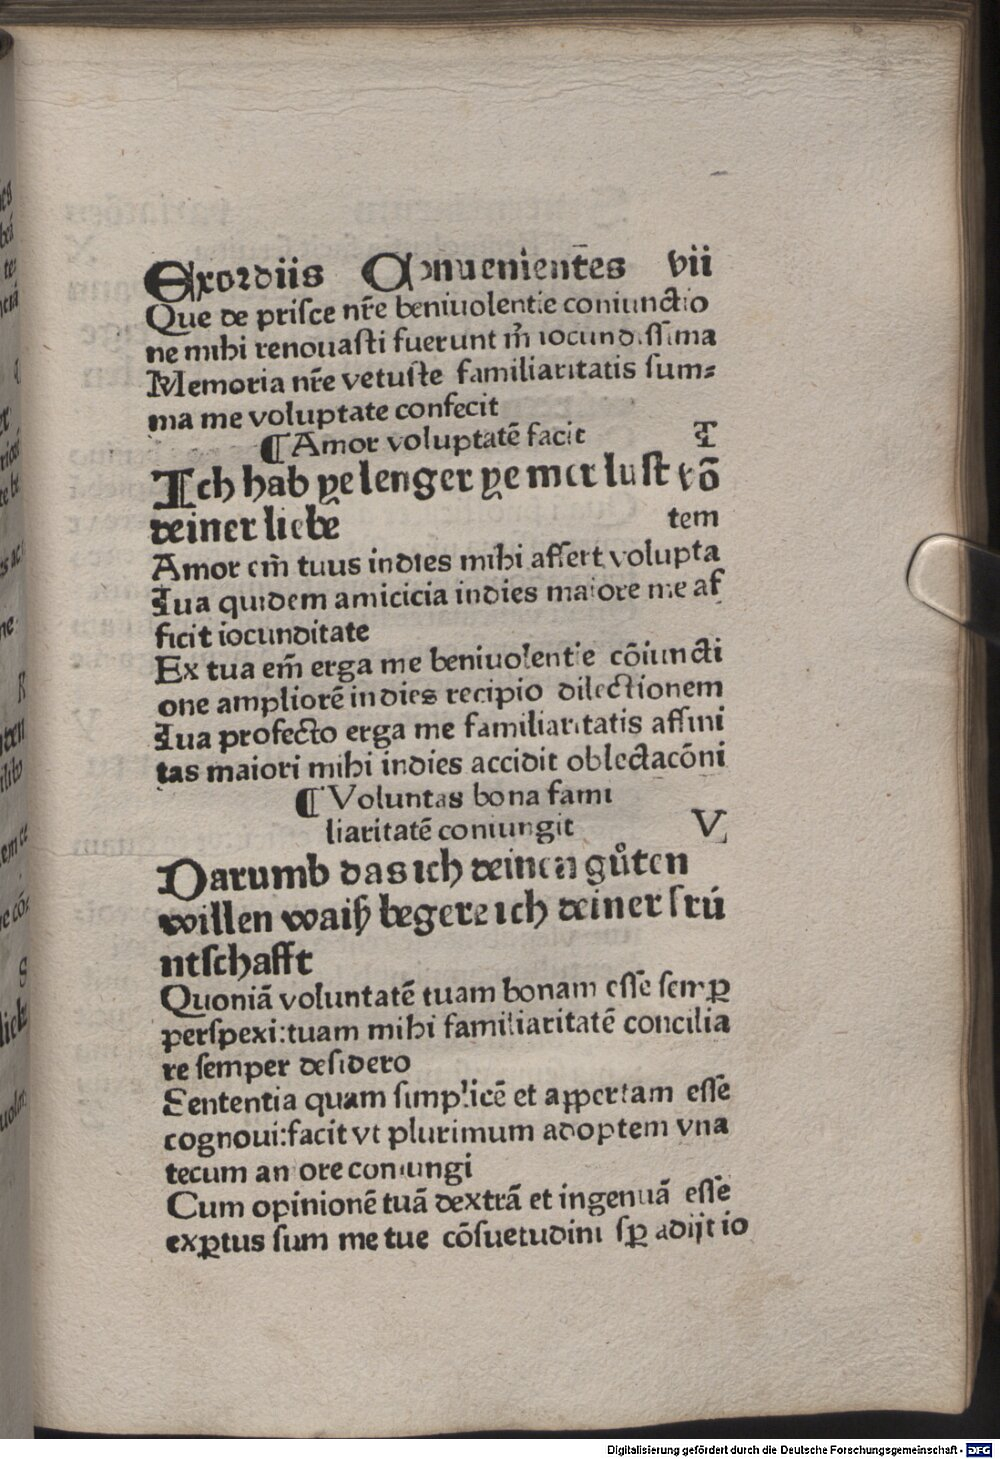 Exordiis Conuenientes vii
Que de prisce nr̄e beniuolentie coniunctio
ne mihi renouasti fuerunt m̄ iocundissima
Memoria nr̄e vetuste familiaritatis sum⸗
ma me voluptate confecit
¶ Amor voluptatē facit T
Ich hab ye lenger ye mer lust vō
deiner liebe tem
Amor em̄ tuus indies mihi affert volupta
Tua quidem amicicia indies maiore me af
ficit iocunditate
Ex tua em̄ erga me beniuolentie cōiuncti
one ampliorē indies recipio dilectionem
Tua profecto erga me familiaritatis affini
tas maiori mihi indies accidit oblectacōni
¶ Voluntas bona fami
liaritatē coniungit V
Darumb das ich deinen gůten
willen waiß begere ich deiner frú
ntschafft
Quoniā voluntatē tuam bonam esse semꝑ
perspexi:tuam mihi familiaritatē concilia
re semper desidero
Sententia quam simplicē et appertam esse
cognoui:facit vt plurimum adoptem vna
tecum amore coniungi
Cum opinionē tuā dextrā et ingenuā esse
exꝑtus sum me tue cōsuetudini sꝑ adijtio
Digitalisierung gefördert durch die Deutsche Forschungsgemeinschaft - DFG